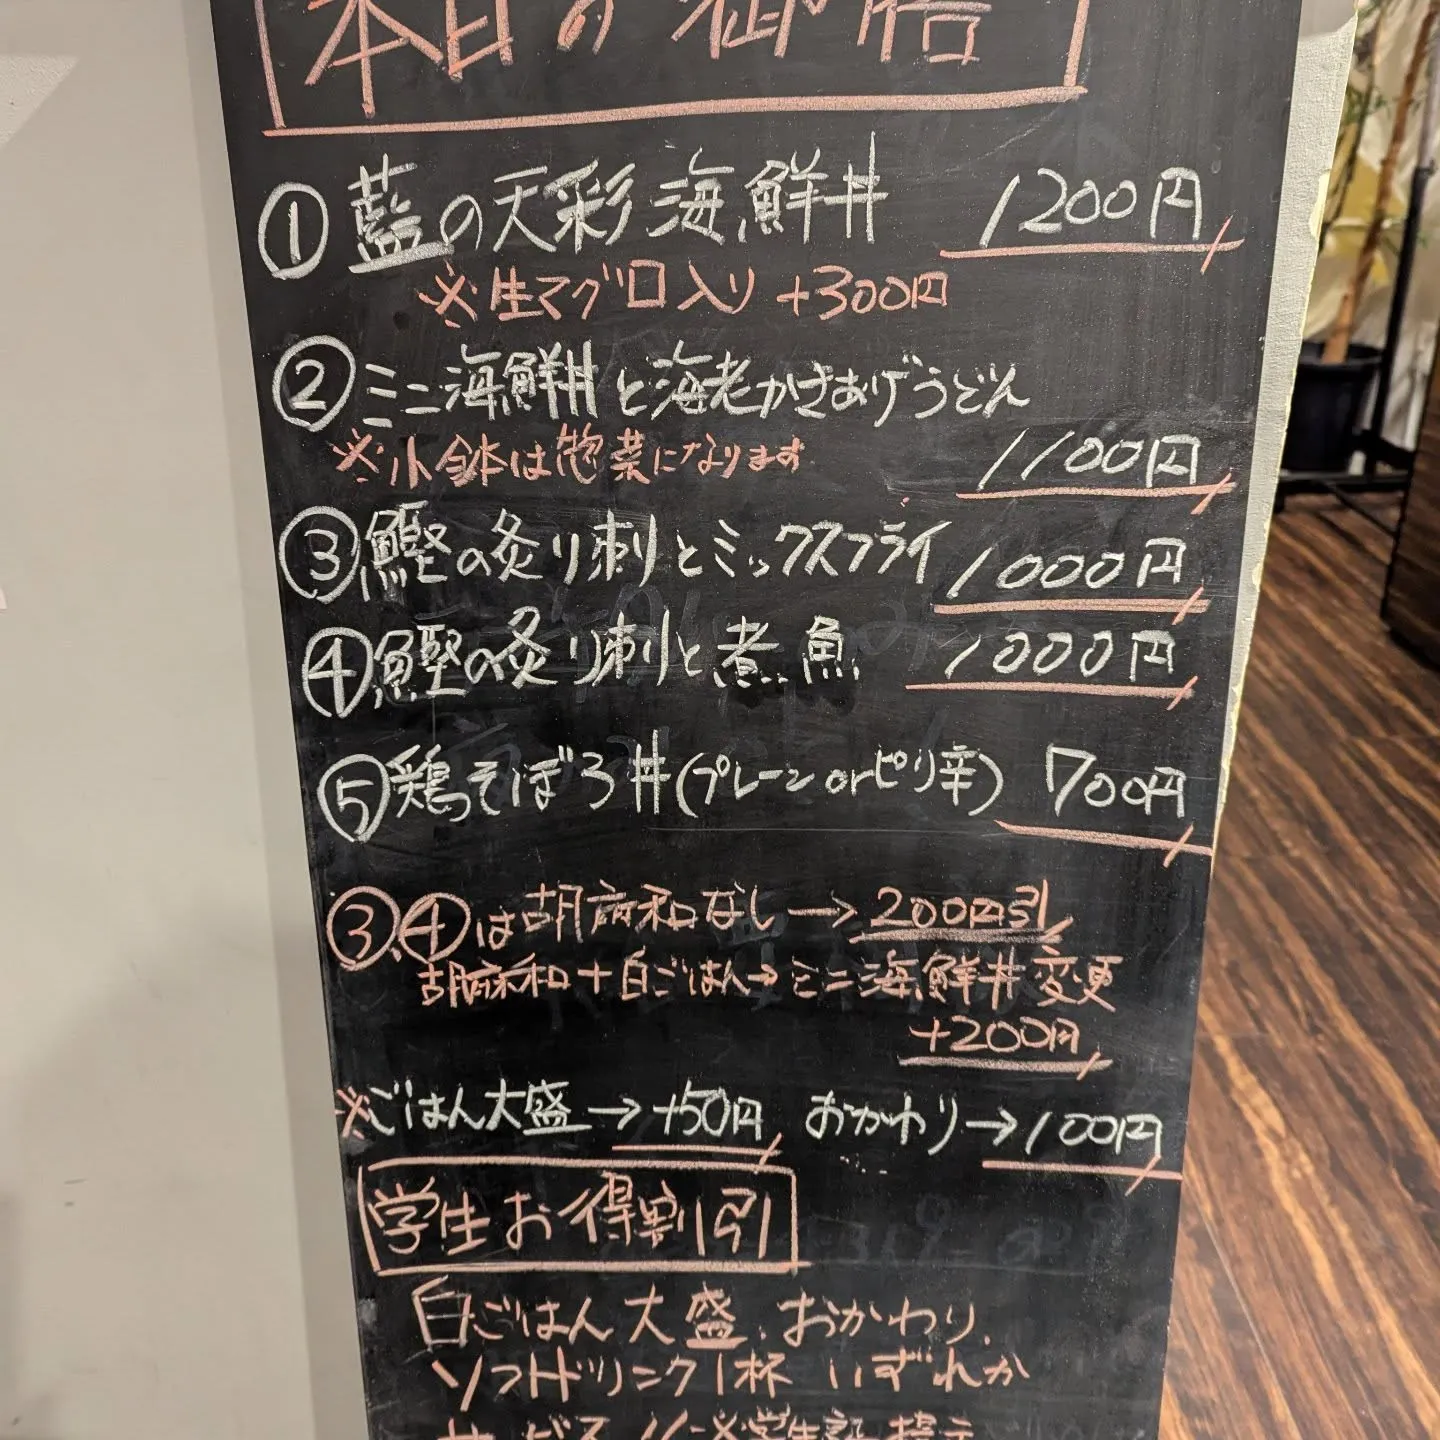 本日の御膳
① 藍の天彩海鮮丼 1200円
※生マグロ入り +300円
② ミニ海鮮丼と海老かきあげうどん
※小鉢は惣菜になります 1100円
③ 鰹の炙り刺とミックスフライ 1000円
④ 鰹の炙り刺と煮魚 1000円
⑤ 鶏そぼろ丼(プレーンorピリ辛) 700円
③④は胡麻和なし→200円引
胡麻和+白ごはん→ミニ海鮮丼変更
+200円
※ごはん大盛→+50円 おかわり→100円
学生お得割引
白ごはん大盛、おかわり、
ソフトドリンク1杯 いずれか
サービス 学生証提示